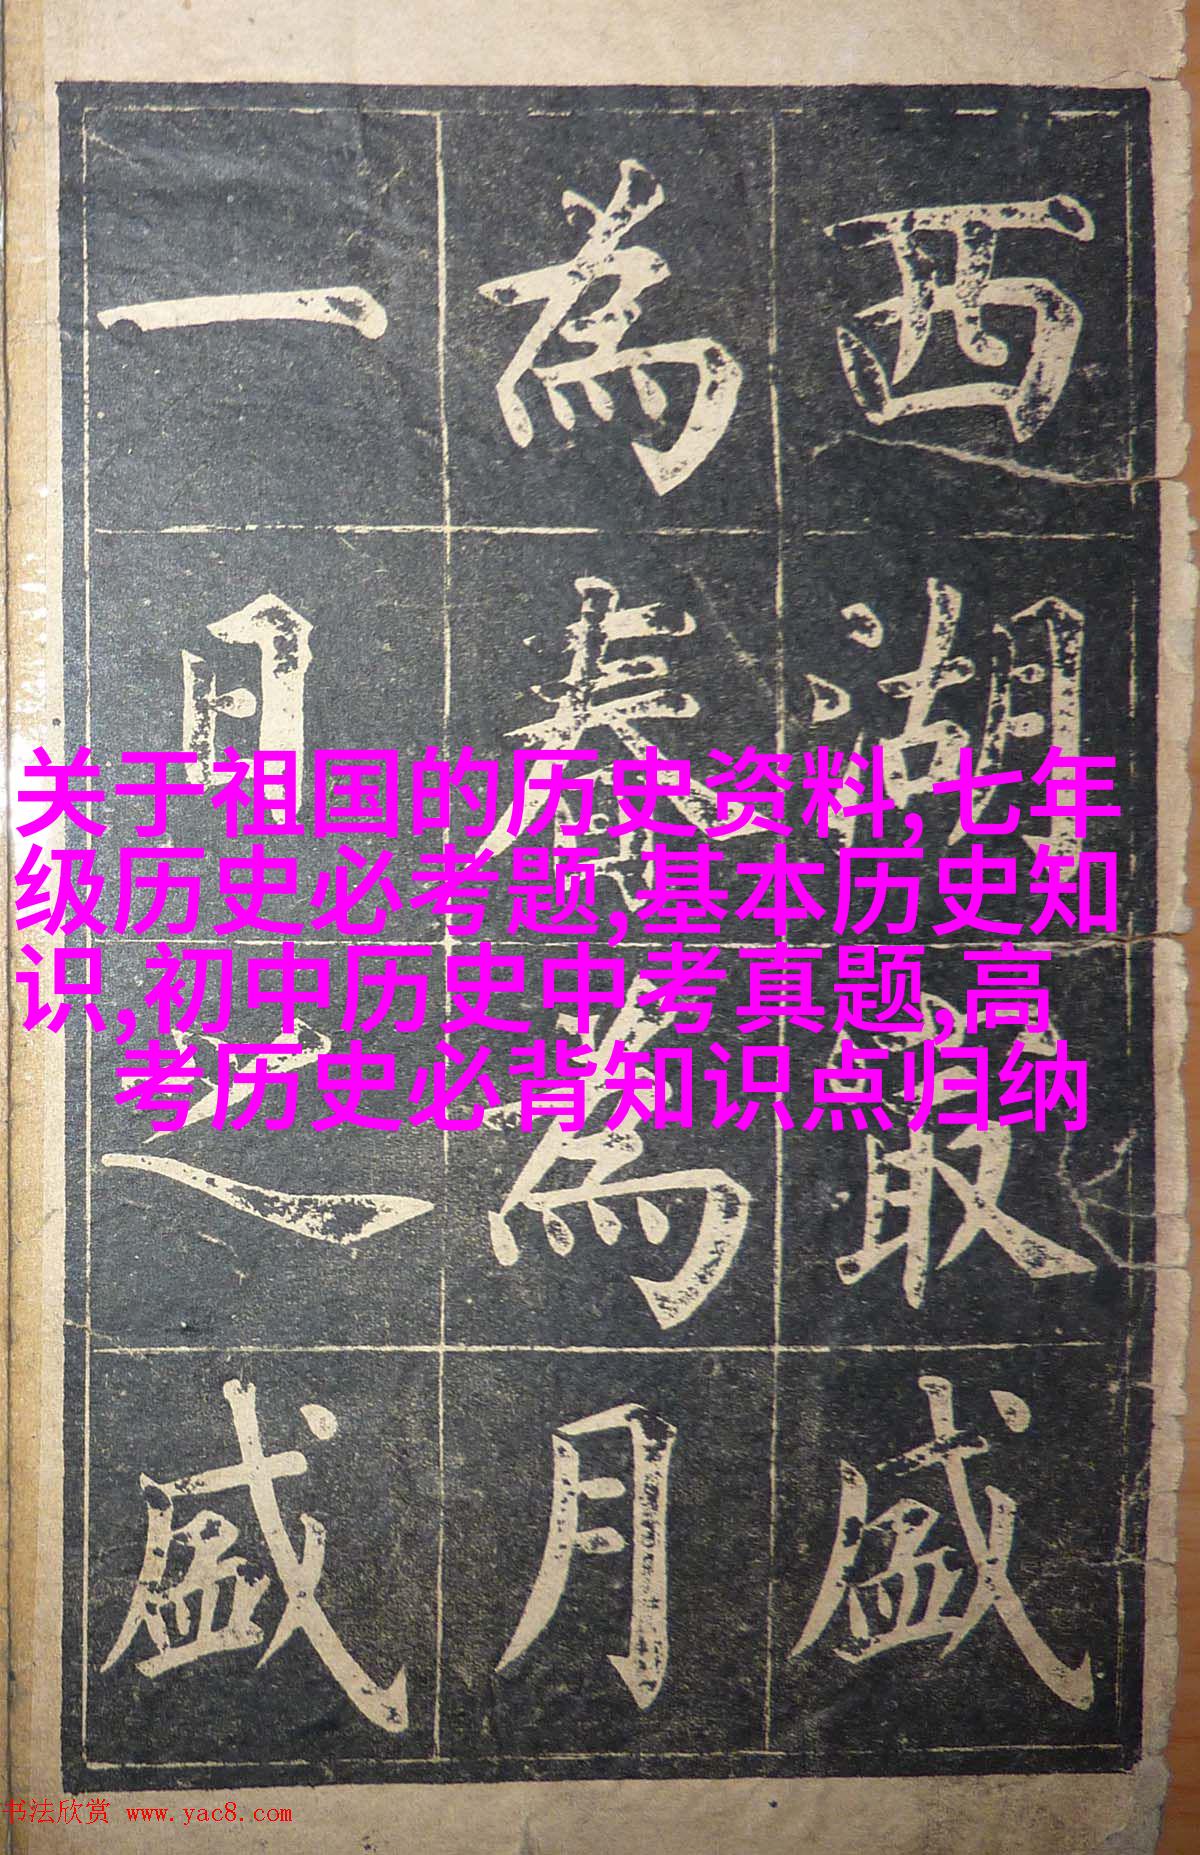 西湖最盛
為春為月
一日之盛
关于祖国的历史资料,七年
级历史必考题,基本历史知
识,初中历史中考真题,高
考历史必背知识点归纳
书法欣赏 www.yac8.com